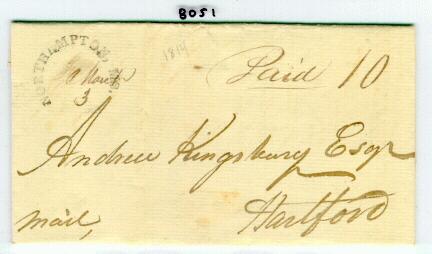 8051
NORTHAMPTON, MS.
1814
March
3
Paid 10
Andrew Kingsbury Esqr
Hartford
Mail,